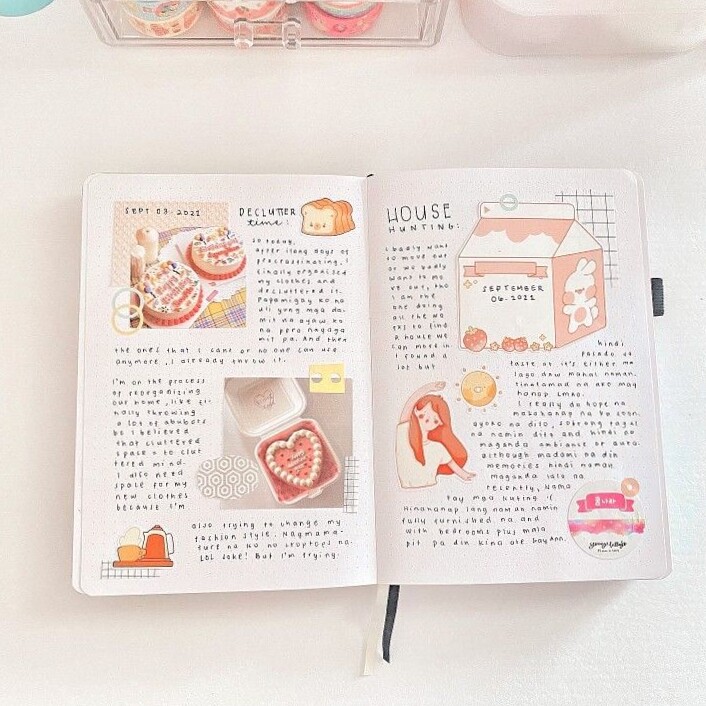 SEPT 03. 2021
DECLUTTER
time:
so today,
after ilang days of
procrastinating, I
finally organised
my clothes and
decluttered it.
Papamigay ko na
ult yong mga da-
mit na ayaw ko
na pero nagaga
mit pa. And then
the ones that I cant or no one can use
anymore, I already throw it.
I'm on the process
of reorganizing
our home, like fi-
nally throwing
a lot of abubots
bc I believed
that cluttered
space = to clut
tered mind.
I also need
space for my
new clothes
because I'm
also trying to change my
fashion style. Nagmama-
ture na ko no croptops na.
LOL joke! But I'm trying.
HOUSE
HUNTING:
SEPTEMBER
06.2021
I badly want
to move out
or we badly
want to mo
ve out, tho
I am the
one doing
all the wo
rks to find
a house we
can move in.
I found a
lot but
hindi
pasado sa
taste or it's either ma
lago daw mahal naman.
tinatamad na ako mag
hanap lmao.
I really do hope na
makahanap na ko soon.
ayoko na dito, sobrang tagal
na namin dito and hindi na
maganda ambiance or aura.
although madami na din
memories hindi naman
maganda lalo na
recently, nama
tay mga kuting :(
Hinahanap lang naman namin
fully furnished na and
with bedrooms plus mala
pit pa din kina ate Gayann.